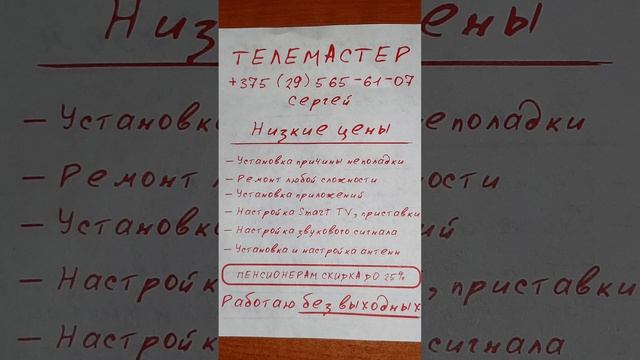 ТЕЛЕМАСТЕР
+375 (29) 565-61-07
Сергей
Низкие цены
– Установка причины неполадки
– Ремонт любой сложности
– Установка приложений
– Настройка Smart TV, приставки
– Настройка звукового сигнала
– Установка и настройка антенн
ПЕНСИОНЕРАМ СКИДКА ДО 25%
Работаю без выходных